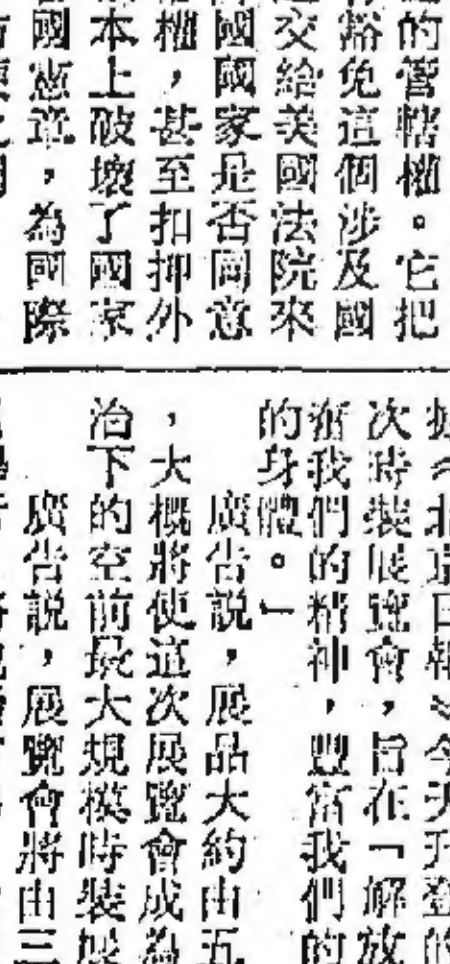 的管轄權。它把
豁免這個涉及國
交給美國法院來
國國家是否同意
權，甚至扣押外
本上破壞了國家
國憲章，為國際
北京日報》今天刊登的
次時裝展覽會，旨在「解放
奮我們的精神，豐富我們的
的身體。」
廣告說，展品大約由五
，大概將使這次展覽會成為
治下的空前最大規模時裝展
廣告說，展覽會將由三